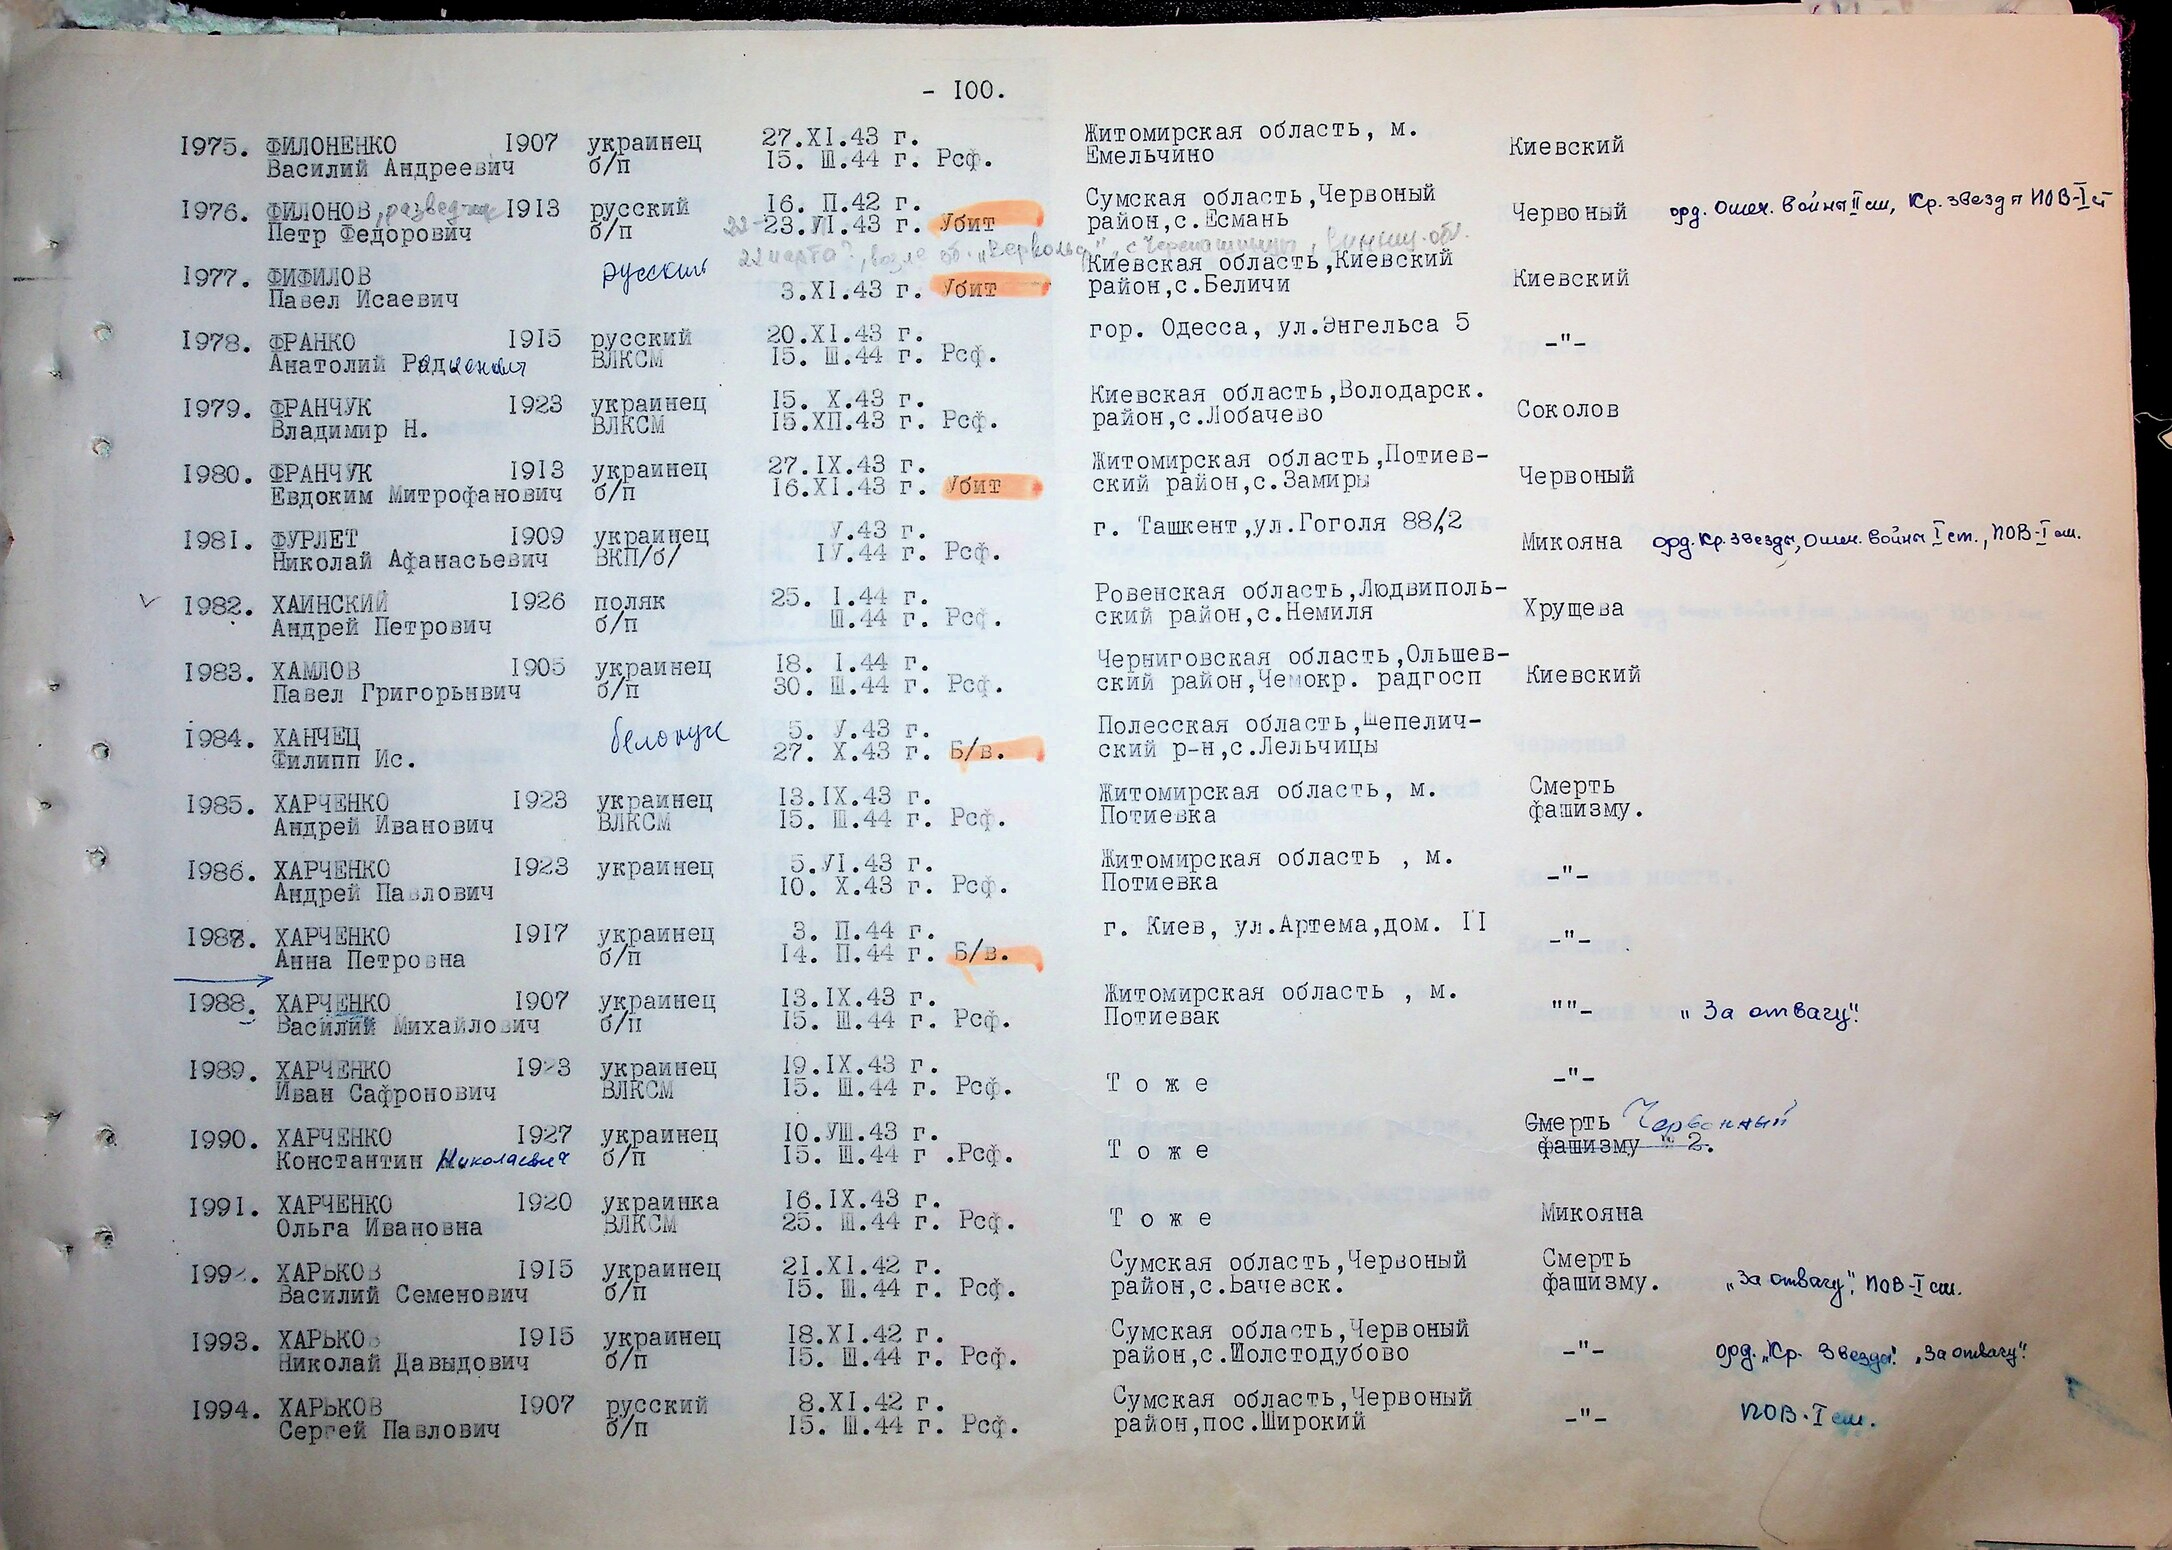 - 100.
1975. ФИЛОНЕНКО 1907 украинец 27.XI.43 г. Житомирская область, м. Киевский
Василий Андреевич б/п 15. Ш.44 г. Рсф. Емельчино
1976. ФИЛОНОВ, разведчик 1913 русский 16. П.42 г. Сумская область,Червоный Червоный орд. Отеч. войны II ст, Кр. звезд ПОВ-I ст
Петр Федорович б/п 23.УI.43 г. Убит район,с.Есмань
22 марта?, возле
1977. ФИФИЛОВ русский Киевская область,Киевский Киевский
Павел Исаевич 3.XI.43 г. Убит район,с.Беличи
1978. ФРАНКО 1915 русский 20.XI.43 г. гор. Одесса, ул.Энгельса 5 -"-
Анатолий Радиенович ВЛКСМ 15. Ш.44 г. Рсф.
1979. ФРАНЧУК 1923 украинец 15. X.43 г. Киевская область,Володарск. Соколов
Владимир Н. ВЛКСМ 15.XП.43 г. Рсф. район,с.Лобачево
1980. ФРАНЧУК 1913 украинец 27.IX.43 г. Житомирская область,Потиев- Червоный
Евдоким Митрофанович б/п 16.XI.43 г. Убит ский район,с.Замиры
1981. ФУРЛЕТ 1909 украинец У.43 г. г. Ташкент,ул.Гоголя 88/,2 Микояна орд. Кр. звезды, Отеч. войны I ст., ПОВ-I ст.
Николай Афанасьевич ВКП/б/ IУ.44 г. Рсф.
1982. ХАИНСКИЙ 1926 поляк 25. I.44 г. Ровенская область,Людвиполь- Хрущева
Андрей Петрович б/п Ш.44 г. Рсф. ский район,с.Немиля
1983. ХАМЛОВ 1905 украинец 18. I.44 г. Черниговская область,Ольшев- Киевский
Павел Григорьнвич б/п 30. Ш.44 г. Рсф. ский район,Чемокр. радгосп
1984. ХАНЧЕЦ белорус 5. У.43 г. Полесская область,Шепелич-
Филипп Ис. 27. X.43 г. Б/в. ский р-н,с.Лельчицы
1985. ХАРЧЕНКО 1923 украинец 13.IX.43 г. Житомирская область, м. Смерть
Андрей Иванович ВЛКСМ 15. Ш.44 г. Рсф. Потиевка фашизму.
1986. ХАРЧЕНКО 1923 украинец 5.УI.43 г. Житомирская область , м. -"-
Андрей Павлович 10. X.43 г. Рсф. Потиевка
1987. ХАРЧЕНКО 1917 украинец 3. П.44 г. г. Киев, ул.Артема,дом. II -"-
Анна Петровна б/п 14. П.44 г. Б/в.
1988. ХАРЧЕНКО 1907 украинец 13.IX.43 г. Житомирская область , м. ""- "За отвагу".
Василий Михайлович б/п 15. Ш.44 г. Рсф. Потиевак
1989. ХАРЧЕНКО 1923 украинец 19.IX.43 г. Т о ж е -"-
Иван Сафронович ВЛКСМ 15. Ш.44 г. Рсф.
1990. ХАРЧЕНКО 1927 украинец 10.УШ.43 г. Т о ж е Смерть Червонный
Константин Николаевич б/п 15. Ш.44 г .Рсф. фашизму " 2.
1991. ХАРЧЕНКО 1920 украинка 16.IX.43 г. Т о ж е Микояна
Ольга Ивановна ВЛКСМ 25. Ш.44 г. Рсф.
1992. ХАРЬКОВ 1915 украинец 21.XI.42 г. Сумская область,Червоный Смерть
Василий Семенович б/п 15. Ш.44 г. Рсф. район,с.Бачевск. фашизму. "За отвагу", ПОВ-I ст.
1993. ХАРЬКОВ 1915 украинец 18.XI.42 г. Сумская область,Червоный -"- орд. "Кр. Звезда". "За отвагу".
Николай Давыдович б/п 15. Ш.44 г. Рсф. район,с.Шолстодубово
1994. ХАРЬКОВ 1907 русский 8.XI.42 г. Сумская область,Червоный -"- ПОВ-I ст.
Сергей Павлович б/п 15. Ш.44 г. Рсф. район,пос.Широкий